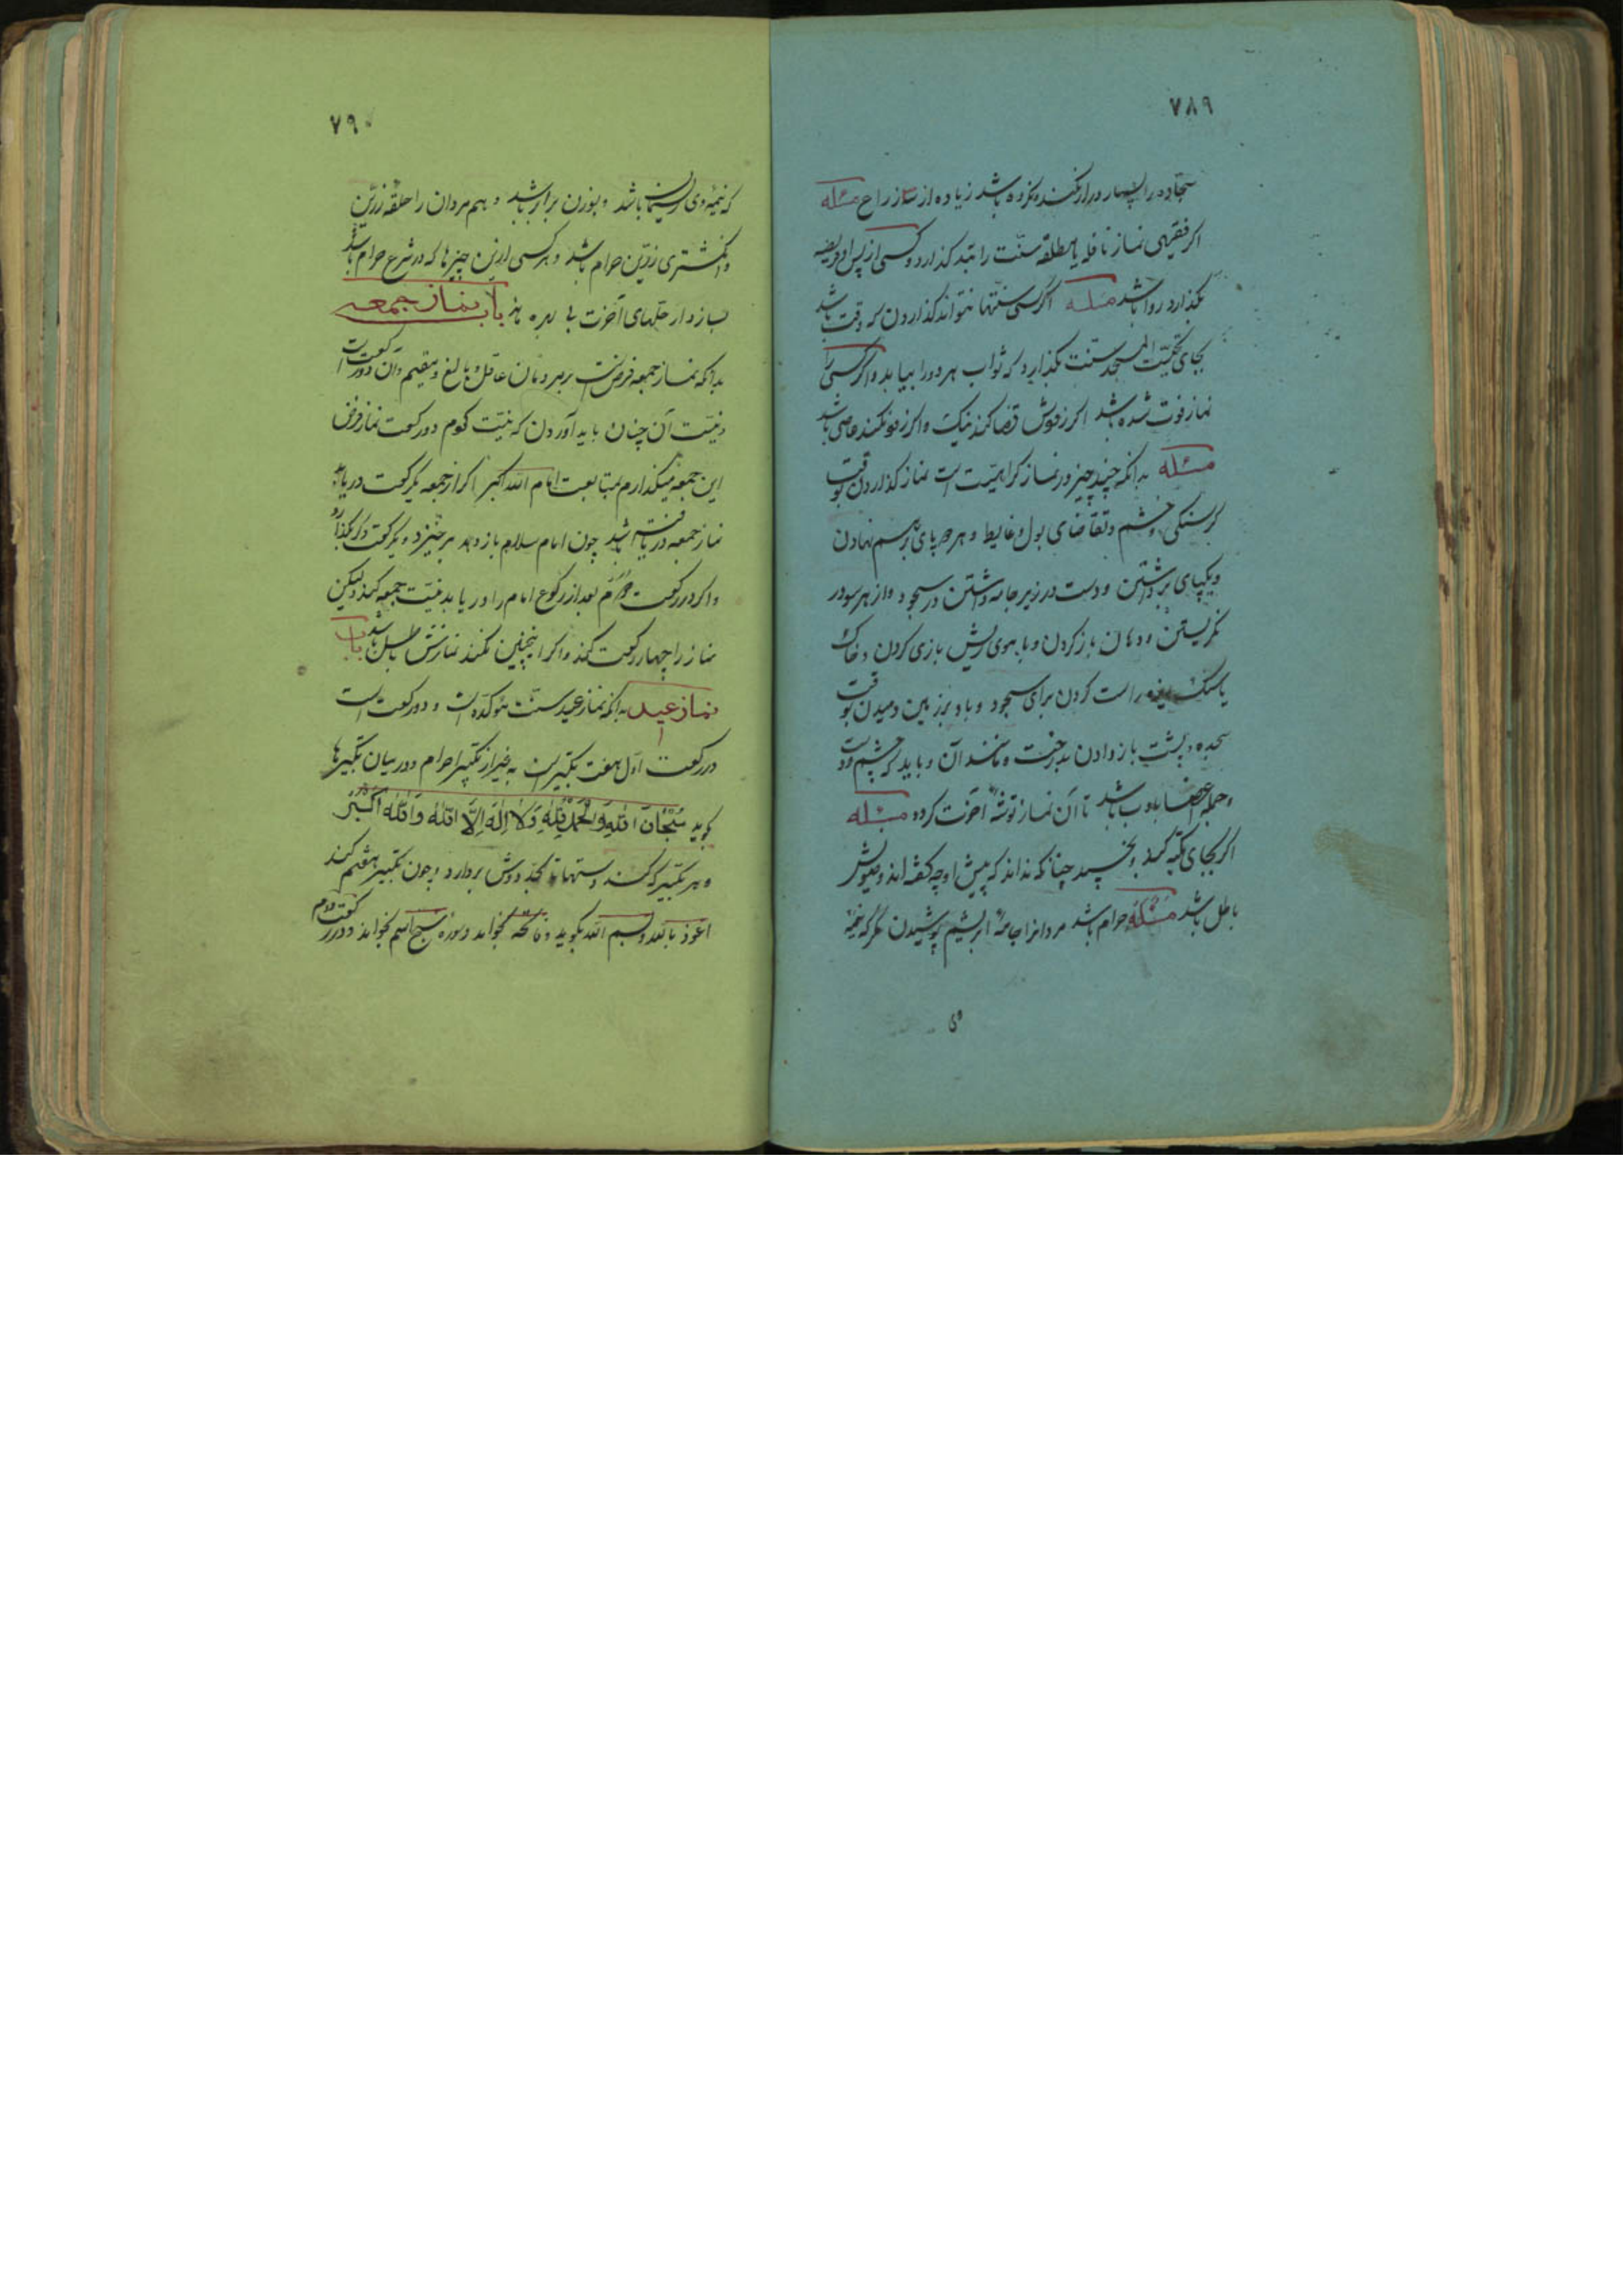 ٧٨٩
سجاده را بسیار دراز نکند و نکروه باشد زیاده از سه زراع مسئله
اکر فقیهی نماز نافله یا مطلقه سنت را بتد کذارد و کسی از پس او فریضه
بکذارد روا باشد مسئله اکر کسی سنتها نتواند کذاردن که وقت باشد
بجای تحیّت المسجد سنّت بکذارد که ثواب هر دو را بیابد و اکر کسی را
نماز فوت شده باشد اکر زفوتش قضا کند نیک و اکر نکند عاصی باشد
مسئله بدانکه چند چیز در نماز کراهیّت است نماز کذاردن بوقت
کرسنکی و خشم و تقاضای بول و غایط و هر دو پای بر هم نهادن
و یکپای برداشتن و دست در زیر جامه داشتن در سجود و از هر سو در
نکریستن و دهان باز کردن و با موی ریش بازی کردن و خاک
یا سنک ریزه راست کردن برای سجود و باد بر زمین دمیدن بوقت
سجده و پشت باز دادن بدرخت و مانند آن و باید که چشم و دست
و جمله اعضا با ادب باشد تا آن نماز توشهٔ آخرت کردد مسئله
اکر بجای تکیه کند و بخسپد چنانکه نداند که پیش او چه کفته اند وضویش
باطل باشد مسئله حرام باشد مردانرا جامهٔ ابریشم پوشیدن مکر که نیمهٔ
وی
٧٩٠
که نیمهٔ وی ریسمان باشد و بوزن برابر باشد و هم مردان را حلقه زرّین
و انکشتری زرّین حرام باشد و هر کسی ازین چیزها که در شرع حرام باشد
بساز دار حلّهای آخرت بی بهره ماند باب نماز جمعه
بدانکه نماز جمعه فرض است بر مردمان عاقل و بالغ و مقیم و آن دو رکعت است
و نیّت آن چنان باید آوردن که نیّت کردم دو رکعت نماز فرض
این جمعه میکذارم بمتابعت امام الله اکبر اکر از جمعه یکرکعت دریابد
نماز جمعه دریافته باشد چون امام سلام باز دهد برخیزد و یکرکعت دیکر بکذارد
و اکر در رکعت دوم بعد از رکوع امام را دریابد نیّت جمعه کند ولیکن
نماز را چهار رکعت کند و اکر اینچنین نکند نمازش باطل باشد باب
نماز عید بدانکه نماز عید سنّت مؤکّده است و دو رکعت است
در رکعت اوّل هفت تکبیر است به غیر از تکبیر احرام و در میان تکبیرها
کوید سُبْحَانَ اللهِ وَالْحَمْدُ لِلّٰهِ وَلَا اِلٰهَ اِلَّا اللهُ وَاللهُ اَکْبَرُ
و هر تکبیر که کند دستها تا بحد دوش بردارد و چون تکبیر هفتم کند
اعوذ بالله و بسم الله بکوید و فاتحه بخواند و سوره سبح اسم بخواند و در رکعت دوم